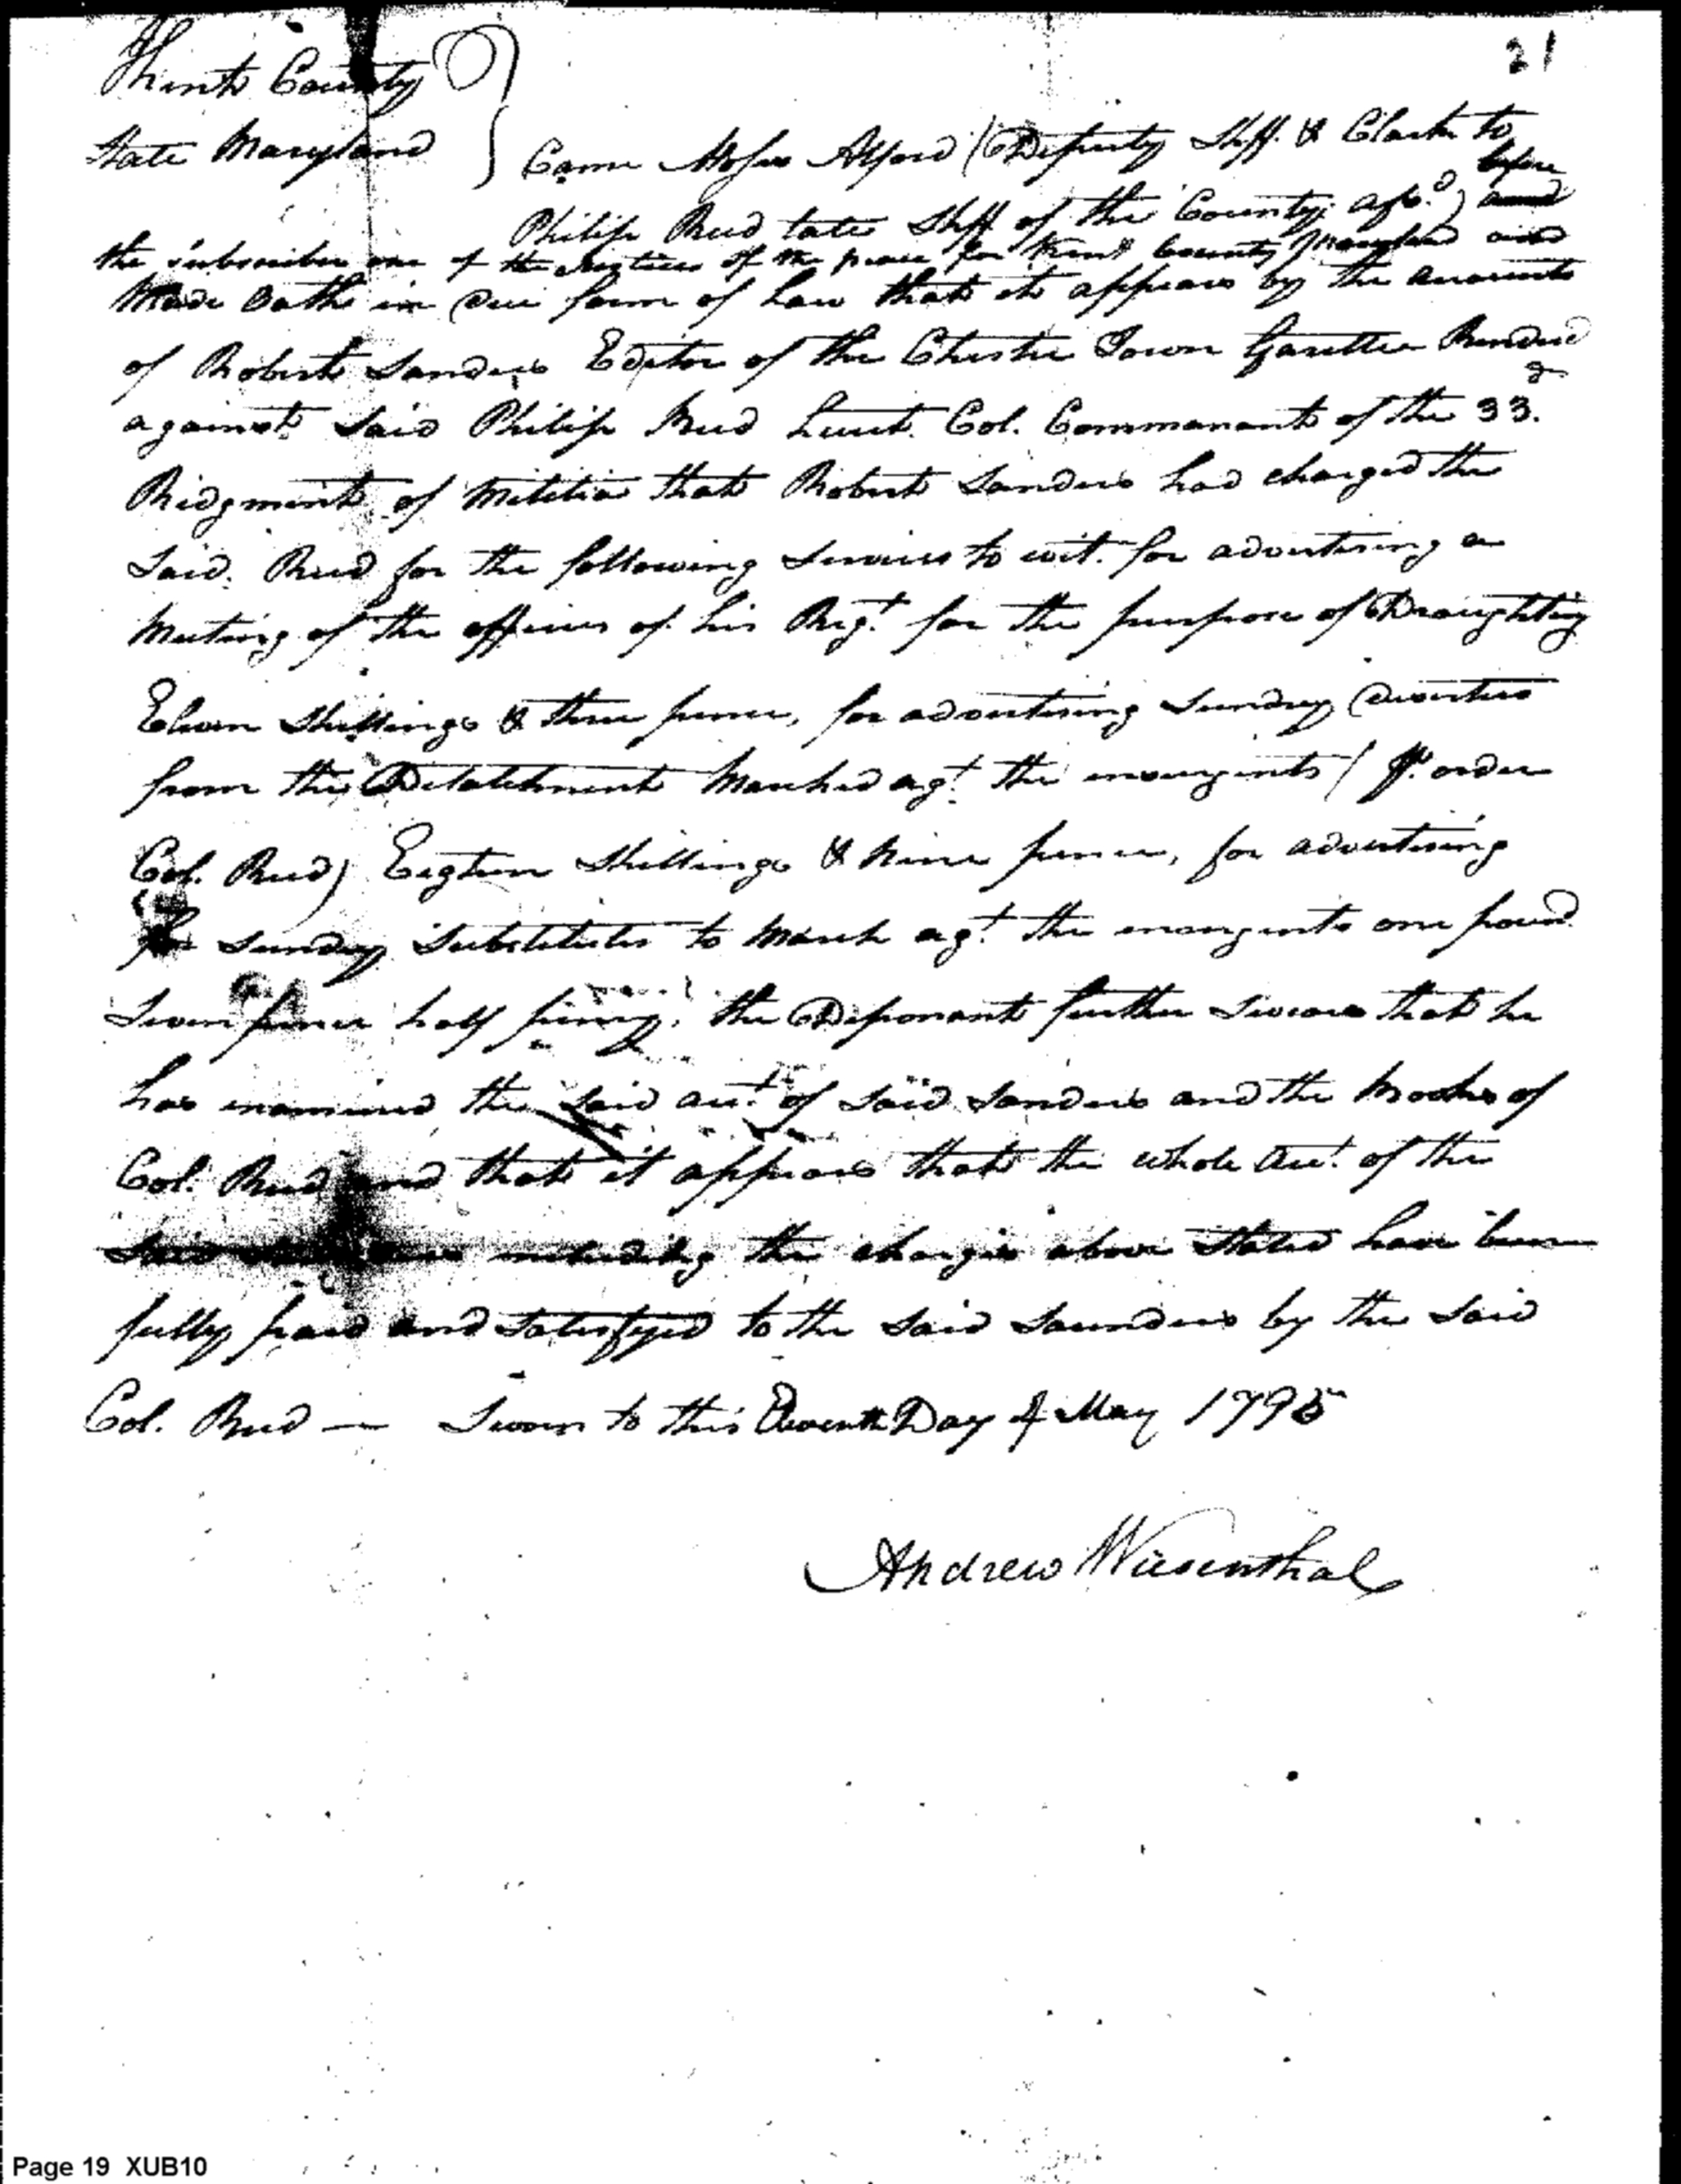 21
Kent County
State Maryland
Came Moses Alford (Deputy Shff. & Clark to
before
Philip Reed late Shff of the County afsd.) and
the subscriber one of the Justices of the peace for Kent County Maryland and
Made Oath in due form of Law that it appears by the accounts
of Robert Sanders Editor of the Chester Town Gazettee Rendred
against said Philip Reed Lieut. Col. Commanant of the 33.d
Ridgment of Militia that Robert Sanders had charged the
Said Reed for the following Services to wit. for advertising a
Meeting of the officers of his Regt. for the purpose of Draughting
Eleven Shillings & three pence, for advertising Sundry Deserters
from the Detatchment Marched agt. the insurgents (pr. order
Col. Reed) Eighteen Shillings & Nine pence, for advertising
for Sundry Substitutes to March agt. the insurgents one pound
Seven pence half penny. the Deponant further Swears that he
has examined the said acct. of said Sanders and the Books of
Col. Reed and that it appears that the whole Acct. of the
Said including the charges above Stated have been
fully paid and Satisfyed to the Said Saunders by the Said
Col. Reed — Sworn to this Eleventh Day of May 1795
Andrew Wiesenthal
Page 19 XUB10